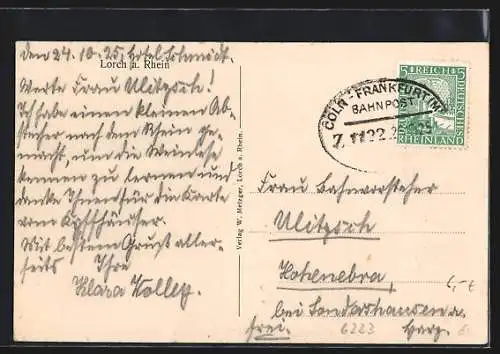 Lorch a. Rhein
den 24.10.25, Hotel Schmidt.
Werte Frau Ulitzsch!
Ich habe einen kleinen Ab-
stecher nach dem Rhein ge-
macht, um die Weinlese
kennen zu lernen und
danke Ihnen für die Karte
vom Kyffhäuser.
Mit bestem Gruß aller-
seits Ihre
Klara Kolley.
Verlag W. Metzger, Lorch a. Rhein.
CÖLN-FRANKFURT(M)
BAHNPOST
Z. 1122 2
5 REICH 5
DEUTSCHES
RHEINLAND
Frau Bahnvorsteher
Ulitzsch
Hohenebra,
bei Sondershausen a.
frei. Harz.
6223